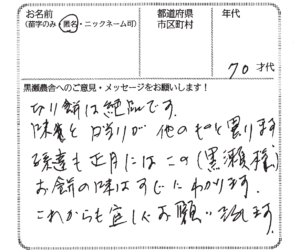 お名前
(苗字のみ・匿名・ニックネーム可)
都道府県
市区町村
年代
70才代
黒瀬農舎へのご意見・メッセージをお願いします！
切り餅は絶品です。
味と口当りが他のものと異ります
孫達も正月にはこの(黒瀬様)
お餅の味はすぐにわかります。
これからも宜しくお願い致します。